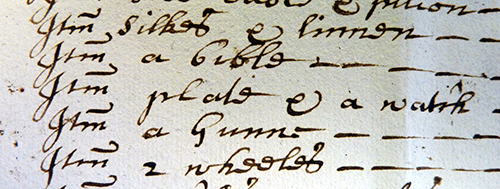 & pillion
Itm silkes & linnen
Itm a bible
Itm plate & a watch
Itm a Gunne
Itm 2 wheeles